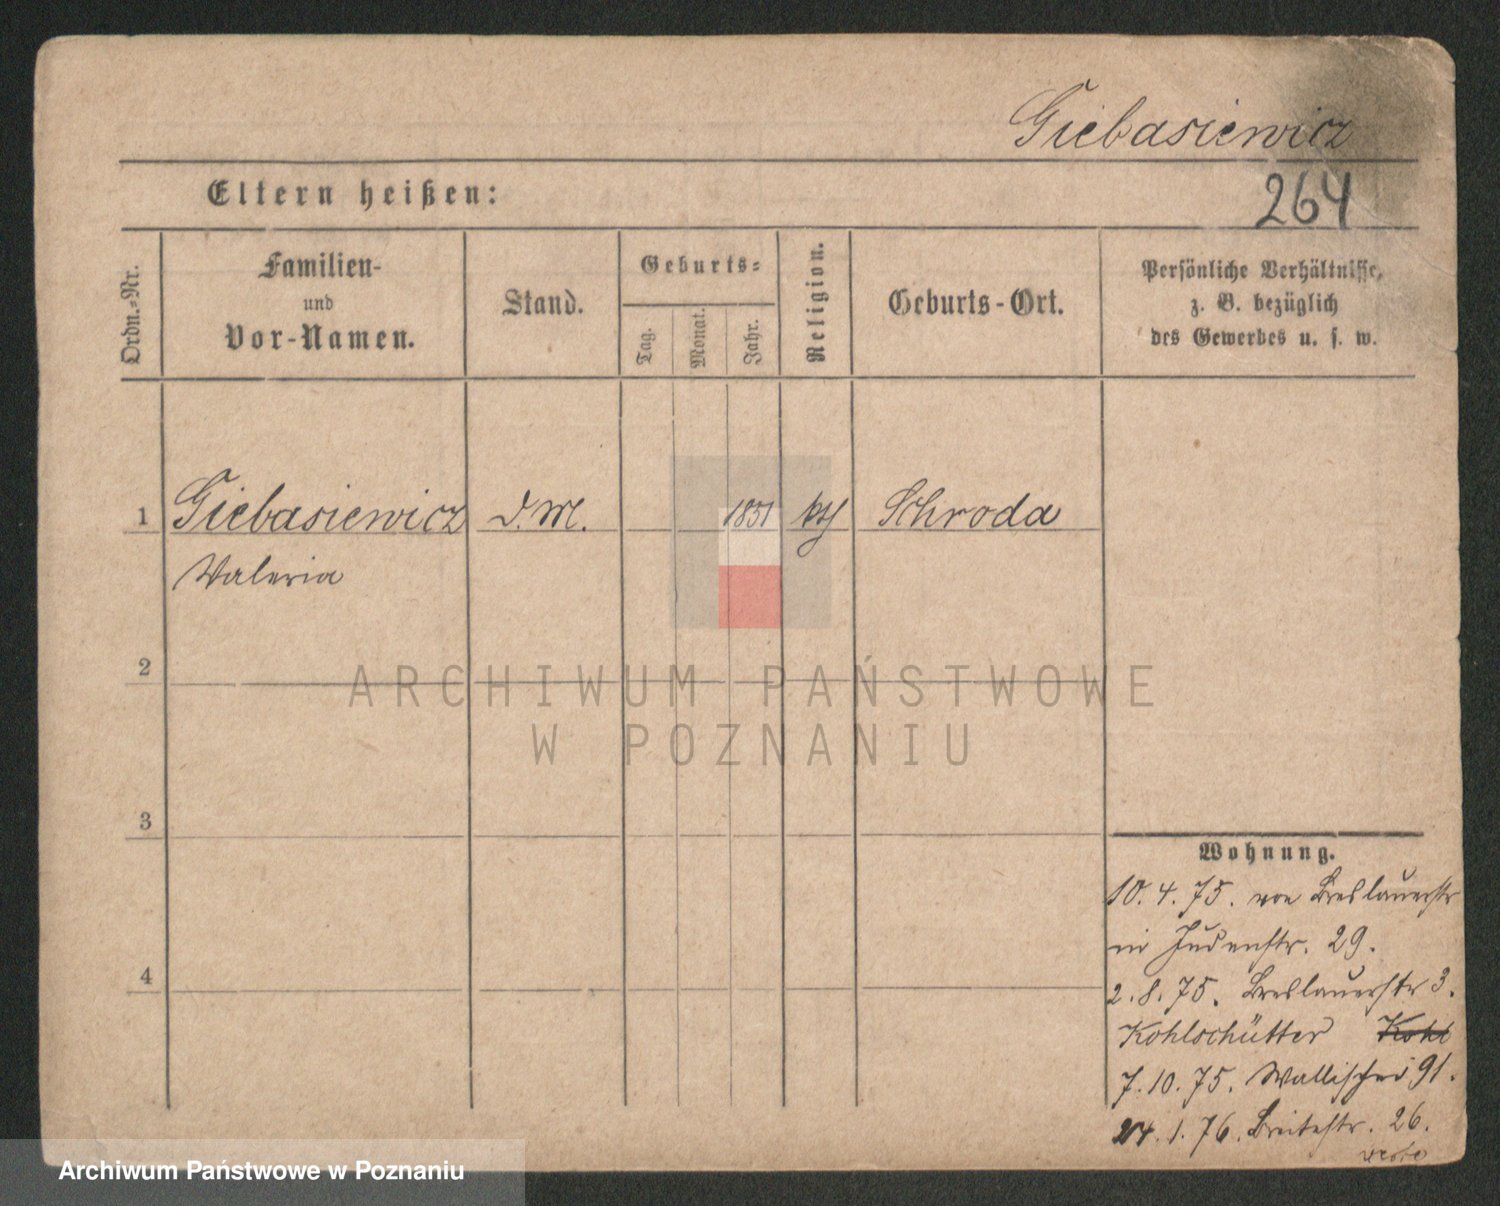 Giebasiewicz
Eltern heißen:
264
Ordn.-Nr.
Familien-
und
Vor-Namen.
Stand.
Geburts-
Tag.
Monat.
Jahr.
Religion.
Geburts-Ort.
Persönliche Verhältnisse,
z. B. bezüglich
des Gewerbes u. s. w.
1 Giebasiewicz D. M. 1851 kth Schroda
Valeria
2
3
4
Wohnung.
10. 4. 75. von Breslauerstr
in Judenstr. 29.
2. 8. 75. Breslauerstr 3.
Kohlschütter Kohl
7. 10. 75. Wallischei 91.
24. 1. 76. Breitestr. 26.
ARCHIWUM PAŃSTWOWE
W POZNANIU
Archiwum Państwowe w Poznaniu